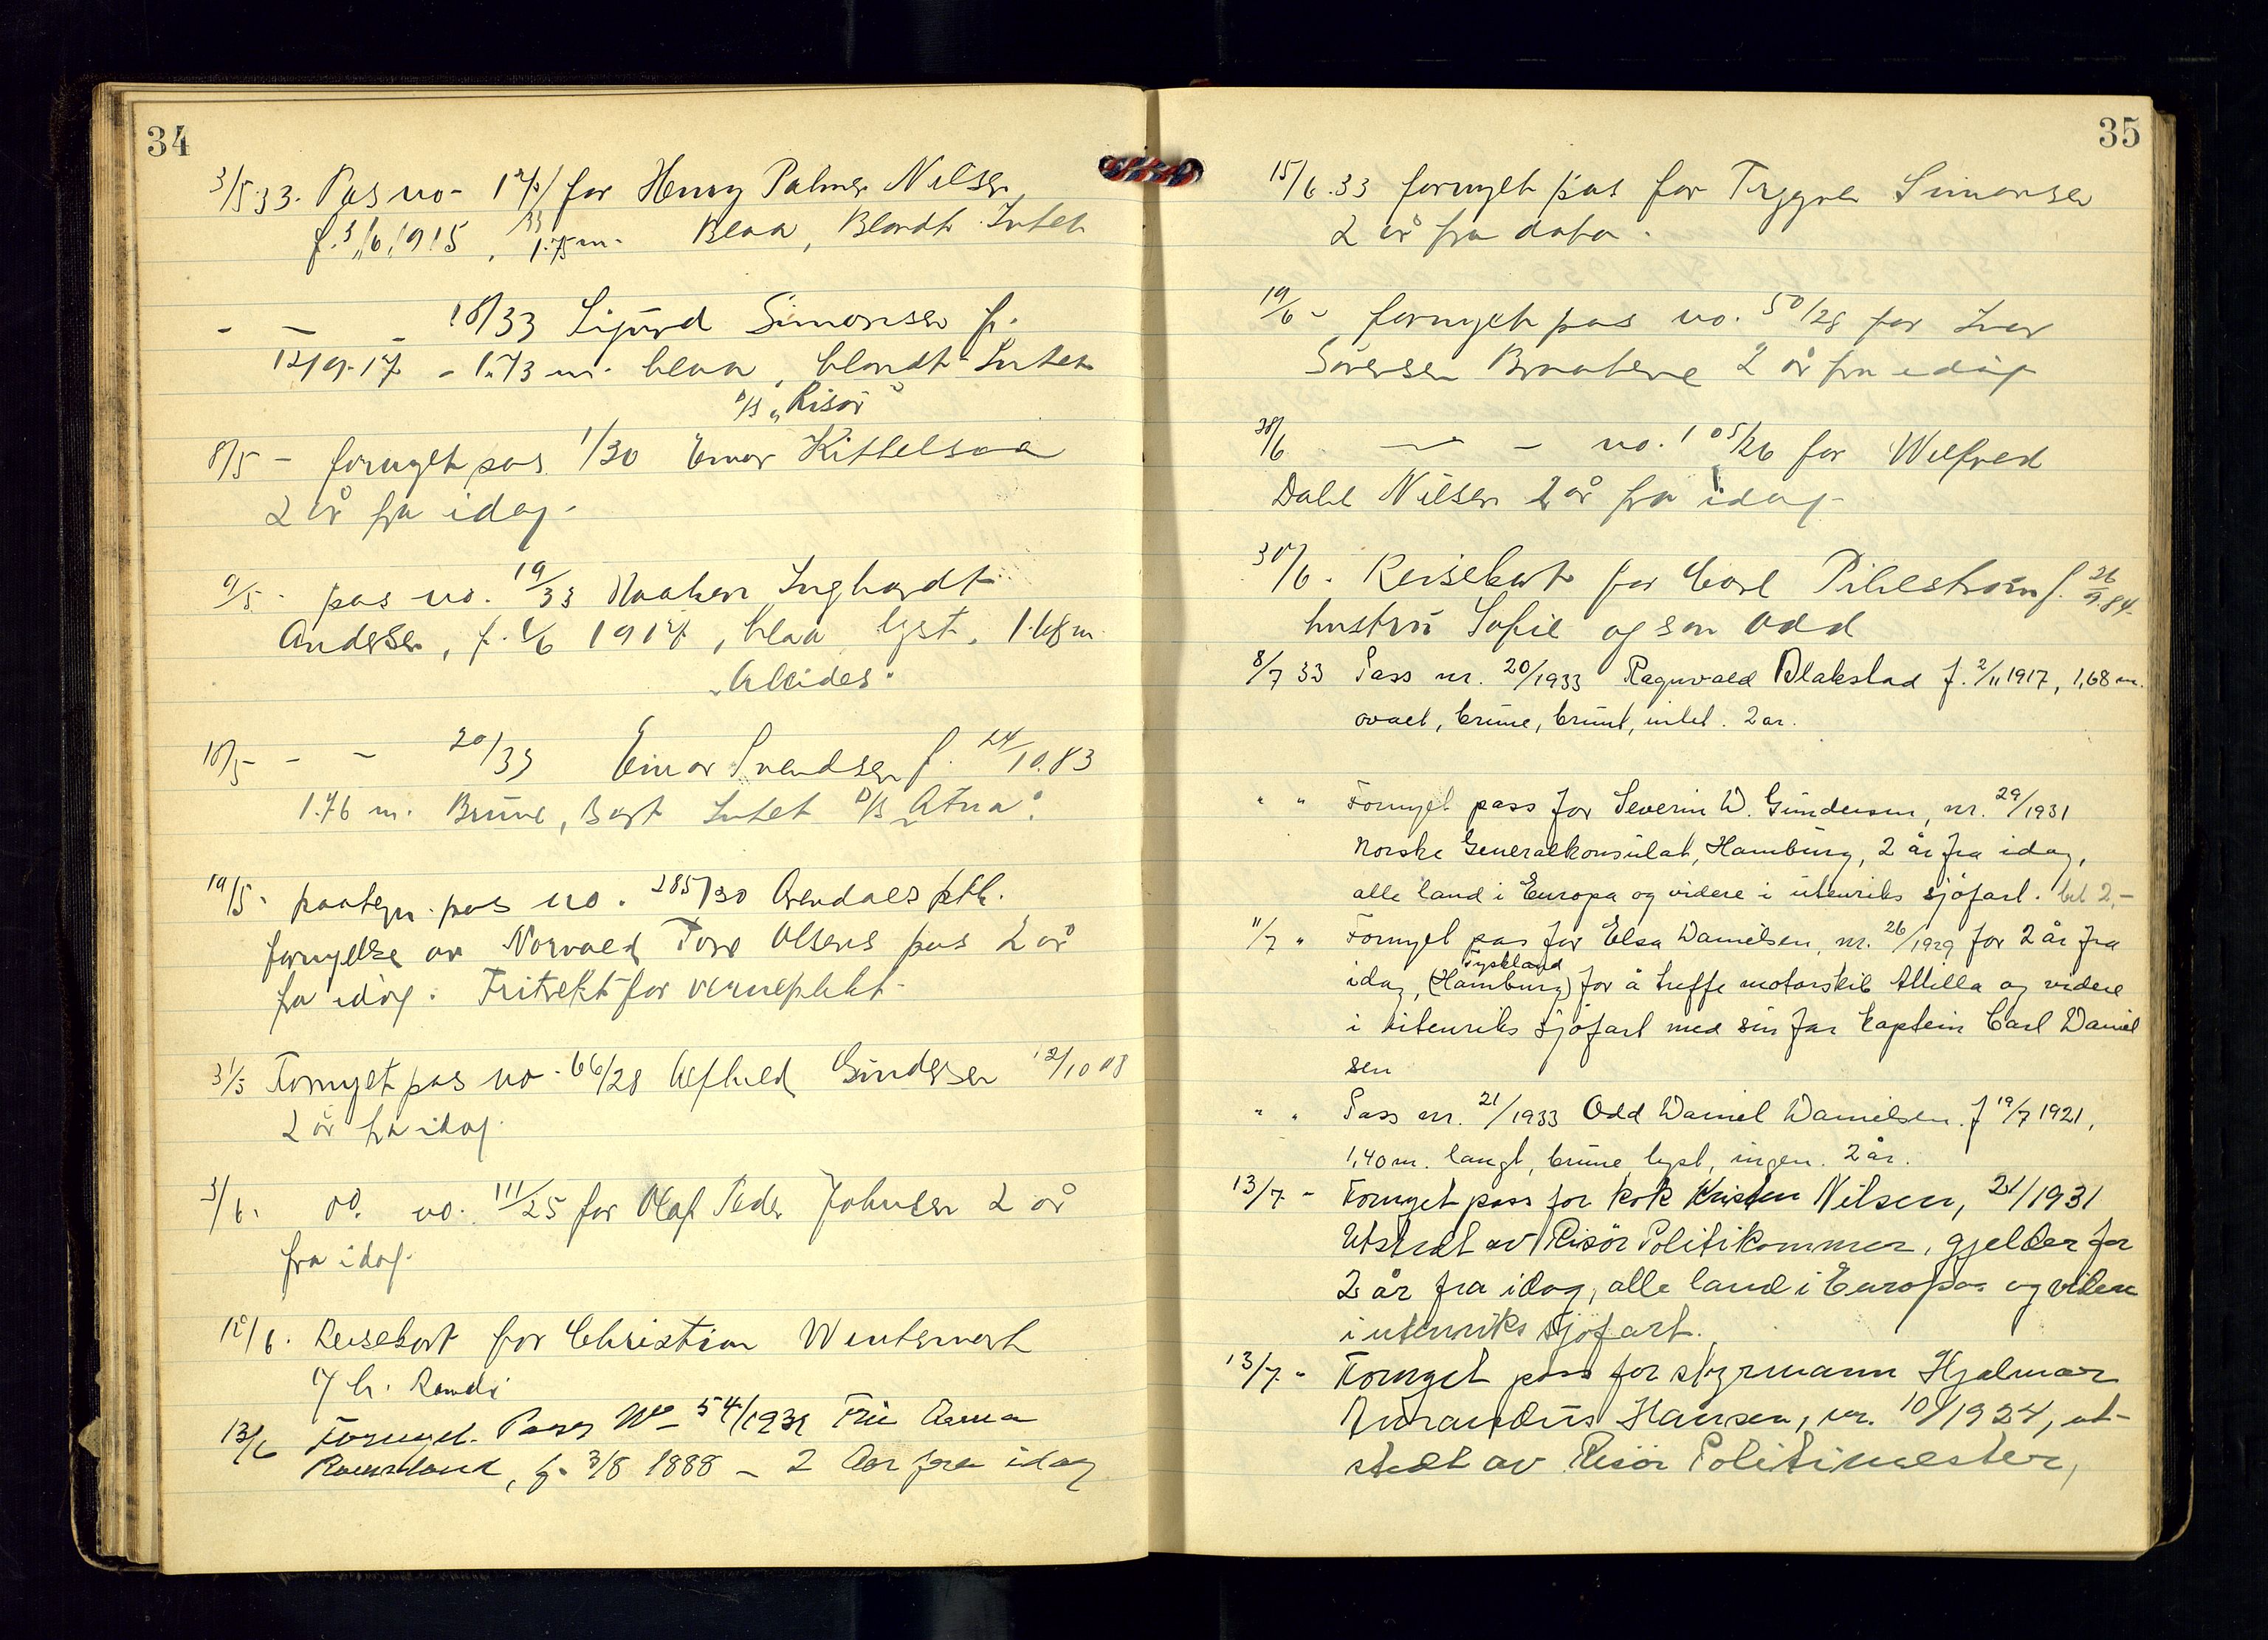 34
3/5 33. Pas no - 17/33 for Henry Palmer Nilsen
f. 3/6 1915, 1.75 m. Blaa, Blondt Intet
- - - 18/33 Sigurd Simonsen f.
12/9.17 - 1.73 m. blaa, blondt Intet
D/S „Risör"
8/5 - fornyet pas 1/30 Einar Kittelsen
2 år fra idag.
9/5 - pas no. 19/33 Haaken Inghardt
Andersen, f. 1/6 1914, blaa lyst, 1.68 m.
„Alcides".
18/5 - - 20/33 Einar Svendsen f. 24/10.83
1.76 m. Brune, Sort Intet D/S „Atna".
19/5 - paategn. pas no. 285/30 Arendals pk.
fornyelse av Norvald Tore Olsens pas 2 år
fra idag. Fritrekt for verneplikt.
31/5 Fornyet pas no. 66/28 Alfhild Gundersen 12/10 08
2 år fra idag.
3/6. do. no. 111/25 for Olaf Peder Johnsen 2 år
fra idag.
12/6. Reisekort for Christian Wintervert
M. br. Randi
13/6 Fornyet Pass No 54/1931 Frú Anna
Roursland, f. 3/8 1888 - 2 Aar fra idag
35
15/6.33 fornyet pas for Trygve Simonsen
2 år fra dato.
19/6 - fornyet pas no. 50/28 for Ivar
Sörensen Braatene 2 år fra idag
28/6 - - no. 105/26 for Wilfred
Dahl Nilsen 2 år fra idag
30/6. Reisekort for Carl Pihlström f. 26/9.84.
hustrú Sofie og sön Odd
8/7 33 Pass nr. 20/1933 Ragnvald Blakstad f. 2/11 1917, 1,68 m.
ovalt, brúne, brúnt, intet. 2 år.
" " Fornyet pass for Severin W. Gúndersen, nr. 29/1931
Norske Generalkonsúlat, Hambúrg, 2 år fra idag,
alle land i Europa og videre i útenriks sjöfart. bet 2,-
11/7 " Fornyet pas for Elsa Danielsen, nr. 26/1929 for 2 år fra
Tyskland
idag, (Hambúrg) for å treffe motorskib Attilla og videre
i útenriks sjöfart med sin far kaptein Carl Daniel
sen
" " Pass nr. 21/1933 Odd Daniel Danielsen. f 19/7 1921,
1,40 m. langt, brúne, lyst, ingen. 2 år.
13/7 - Fornyet pass for kok Kristen Nilsen, 21/1931
Utstedt av Risör Politikammer, gjelder for
2 år fra idag, alle land i Europa og videre
i utenriks sjöfart.
13/7. " Fornyet pass for styrmann Hjalmar
Amandús Hansen, nr. 10/1924, ut-
stedt av Risör Politimester,